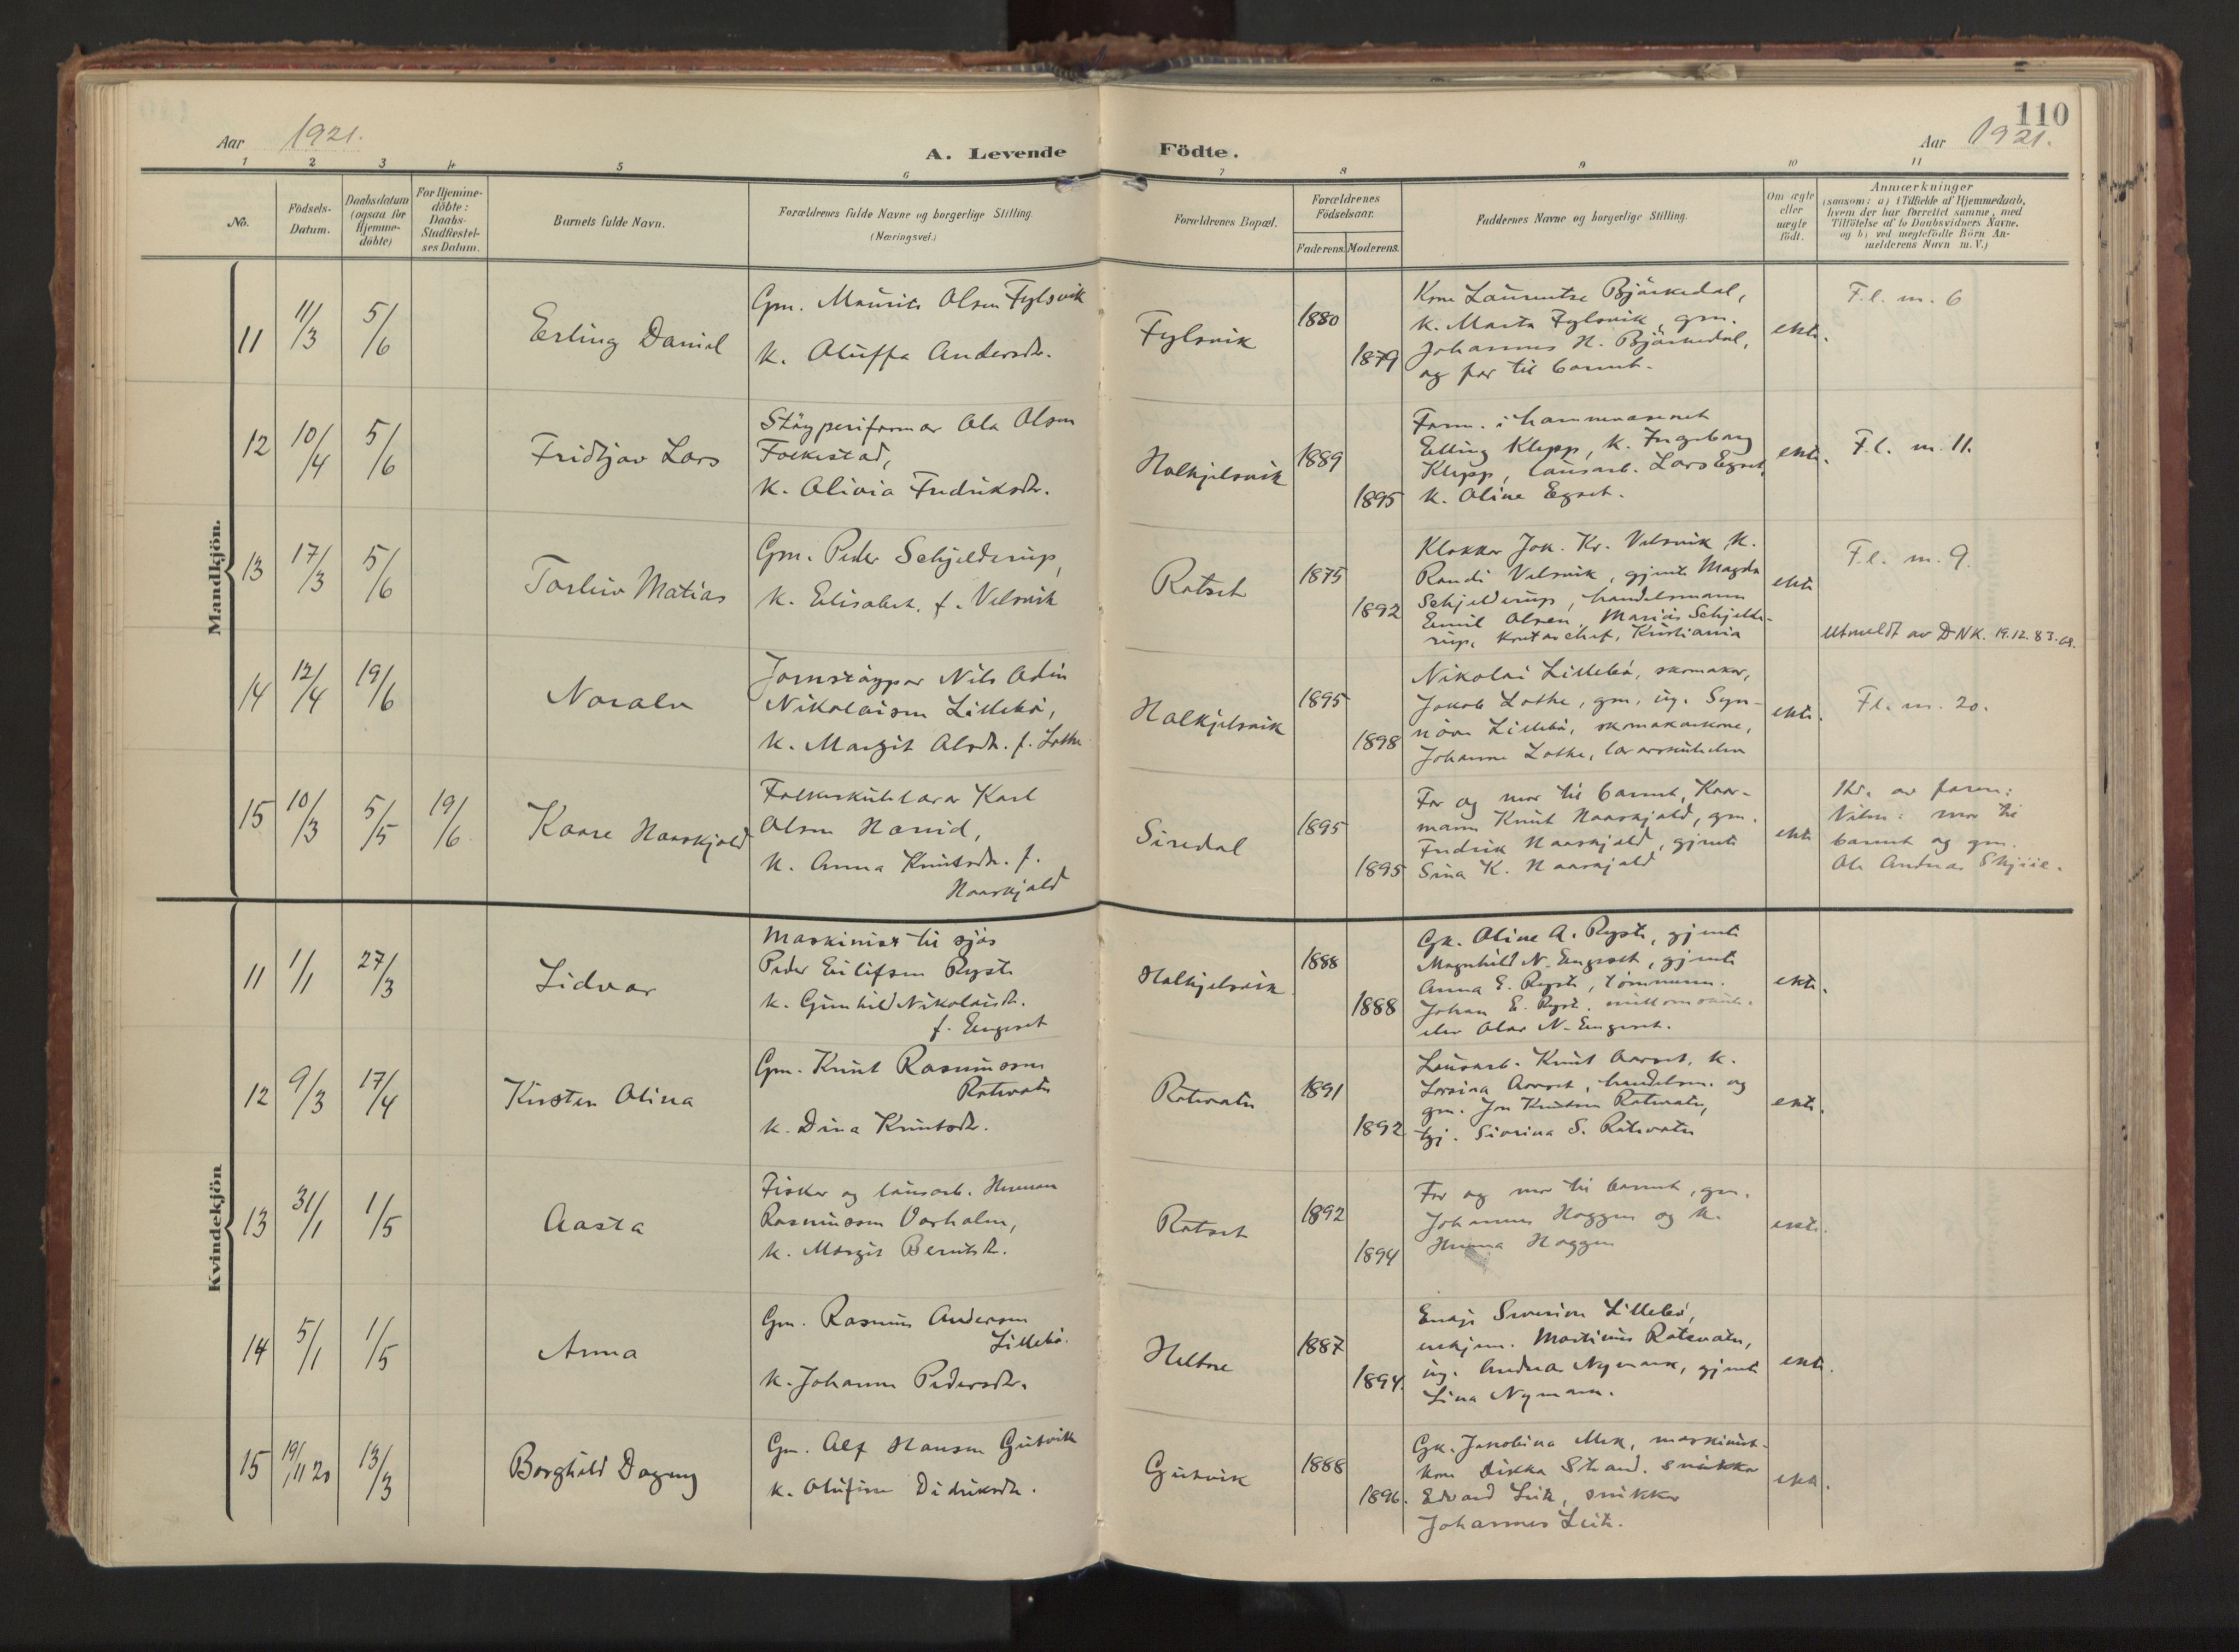 110
Aar 1921.
A. Levende Födte.
Aar 1921.
1 2 3 4 5 6 7 8 9 10 11
No.
Födsels-
Datum.
Daabsdatum
(ogsaa for
Hjemme-
döbte)
For Hjemme-
döbte:
Daabs-
Stadfæstel-
ses Datum.
Barnets fulde Navn.
Forældrenes fulde Navne og borgerlige Stilling.
(Næringsvei.)
Forældrenes Bopæl.
Forældrenes
Födselsaar.
Faderens. Moderens.
Faddernes Navne og borgerlige Stilling.
Om ægte
eller
uægte
födt.
Anmærkninger
(saasom: a) i Tilfælde af Hjemmedaab,
hvem der har forrettet samme, med
Tilföielse af to Daabsvidners Navne.
og b) ved uægtefödte Börn An-
melderens Navn m. V.)
Mandkjön.
11 11/3 5/6
Erling Daniel
Gm. Maurits Olsen Fylsvik
k. Oluffa Andersdr.
Fylsvik
1880
1879
Kone Laurentse Björkedal,
k. Marta Fylsvik, gm.
Johannes H. Björkedal,
og far til barnet.
ekte.
F.l. m. 6
12 10/4 5/6
Fridtjov Lars
Stöyperiformar Ola Olsen
Folkestad,
k. Olivia Fredriksdr.
Halkjelsvik
1889
1895
Form. i
Elling Klepp, k. Ingeborg
Klepp, lausarb. Lars Egset,
k. Oline Egset.
ekte.
F.l. m. 11.
13 17/3 5/6
Torleiv Matias
Gm. Peder Schjelderup,
k. Elisabet, f. Velsvik
Rotset
1875
1892
Klokkar Joh. Kr. Velsvik, k.
Randi Velsvik, gjente Magda
Schjelderup, handelsmann
Emil Olsen, Marius Schjelde-
rup, Kristiania
ekte
F.l. m. 9.
Utmeldt av DNK. 19.12.83.
14 12/4 19/6
Noralv
Jornstöypar Nils Odin
Nikolaisen Lillebö,
k. Margit Olsdr. f. Lothe
Halkjelsvik
1895
1898
Nikolai Lillebö, skomakar,
Jakob Lothe, gm, ug. Syn-
növe Lillebö, skomakarkone,
Johanne Lothe, lararskuleelev
ekte.
F.l. m. 20.
15 10/3 5/5 19/6
Kaare Haaskjold
Folkeskulelarar Karl
Olsen Hovid,
k. Anna Knutsdr. f.
Haaskjold
Siredal
1895
1895
Far og mor til barnet, Kaar-
mann Knut Haaskjold, gm.
Fredrik Haaskjold, gjente
Sina K. Haaskjold
ekte
Hd. av faren:
Vitne: mor til
barnet og gm.
Ole Andreas
Kvindekjön
11 1/1 27/3
Lidvar
Maskinist til sjös
Peder Eilifsen Ryste
k. Gunhild Nikolaisdr.
f. Engeset
Halkjelsvik
1888
1888
Gk. Oline A. Ryste, gjente
Magnhild N. Engeset, gjente
Anna E. Ryste, tömmerm.
Johan E. Ryste,
elev Olav N. Engeset.
ekte.
12 9/3 17/4
Kirsten Olina
Gm. Knut Rasmussen
Rotevatn
k. Dina Knutsdr.
Rotevatn
1891
1892
Lausarb. Knut Aarset, k.
Lovina Aarset, handelsm. og
gm. Jon Knutsen Rotevatn,
tgj. Siverina S. Rotevatn
ekte.
13 31/1 1/5
Aasta
Fiskar og lausarb. Herman
Rasmussen Vorholm,
k. Margit Berntsdr.
Rotset
1892
1894
Far og mor til barnet, gm.
Johannes Haggen og k.
Haggen
ekte.
14 5/1 1/5
Anna
Gm. Rasmus Andersen
Lillebö.
k. Johanne Pedersdr.
Heltne
1887
1894.
Enkje Severine Lillebö,
Martinus Rotevatn,
ug. Andrea Nymark, gjente
Lina Nymark.
ekte.
15 19/11 20 13/3
Borghild Dagny
Gm. Alf Hansen Gutvik
k. Olufine Didriksdr.
Gutvik
1888
1896.
Gk. Jakobina Mek, maskinist-
kone Dikka Strand. snikkar
Edvard Leite, snikkar
Johannes Leite.
ekte.